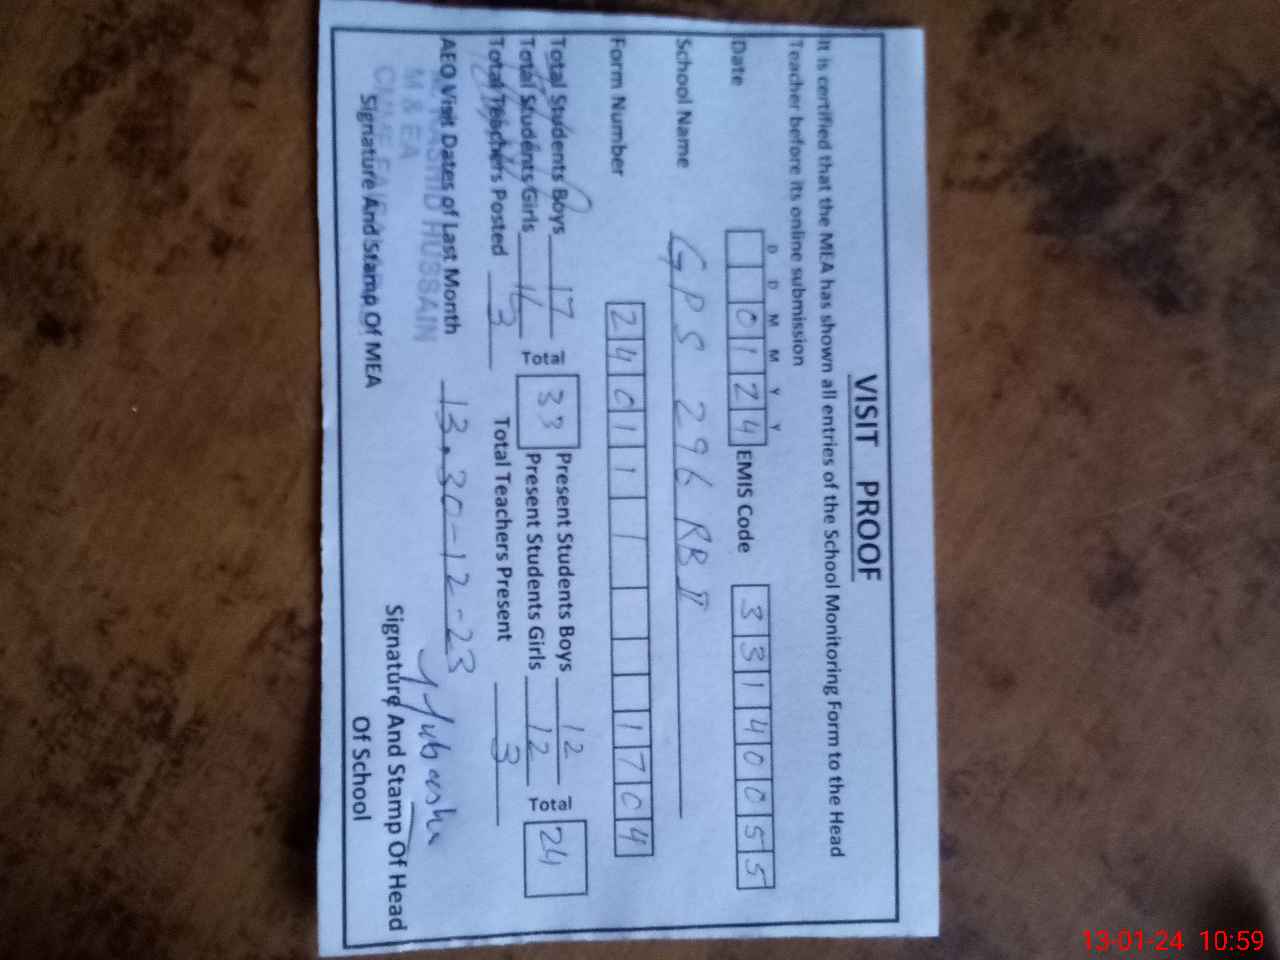 VISIT PROOF
It is certified that the MEA has shown all entries of the School Monitoring Form to the Head
Teacher before its online submission
D D M M Y Y
Date 0 1 2 4 EMIS Code 3 3 1 4 0 0 5 5
School Name GPS 296 RB II
Form Number 2 4 0 1 1 1 1 7 0 4
Total Students Boys 17 Total 33 Present Students Boys 12 Total 24
Total Students Girls 16 Present Students Girls 12
Total Teachers Posted 3 Total Teachers Present 3
AEO Visit Dates of Last Month 13. 30-12-23
RASHID HUSSAIN
M & EA
Signature And Stamp Of MEA
Signature And Stamp Of Head
Of School
13-01-24 10:59